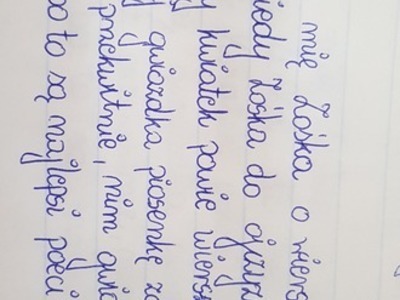 mię Zośka o wiers
iedy Zośka do ojczyz
y kwiatek powie wiersz
y gwiazdka piosenkę za
przekwitnie, nim gwia
oo to są najlepsi poeci